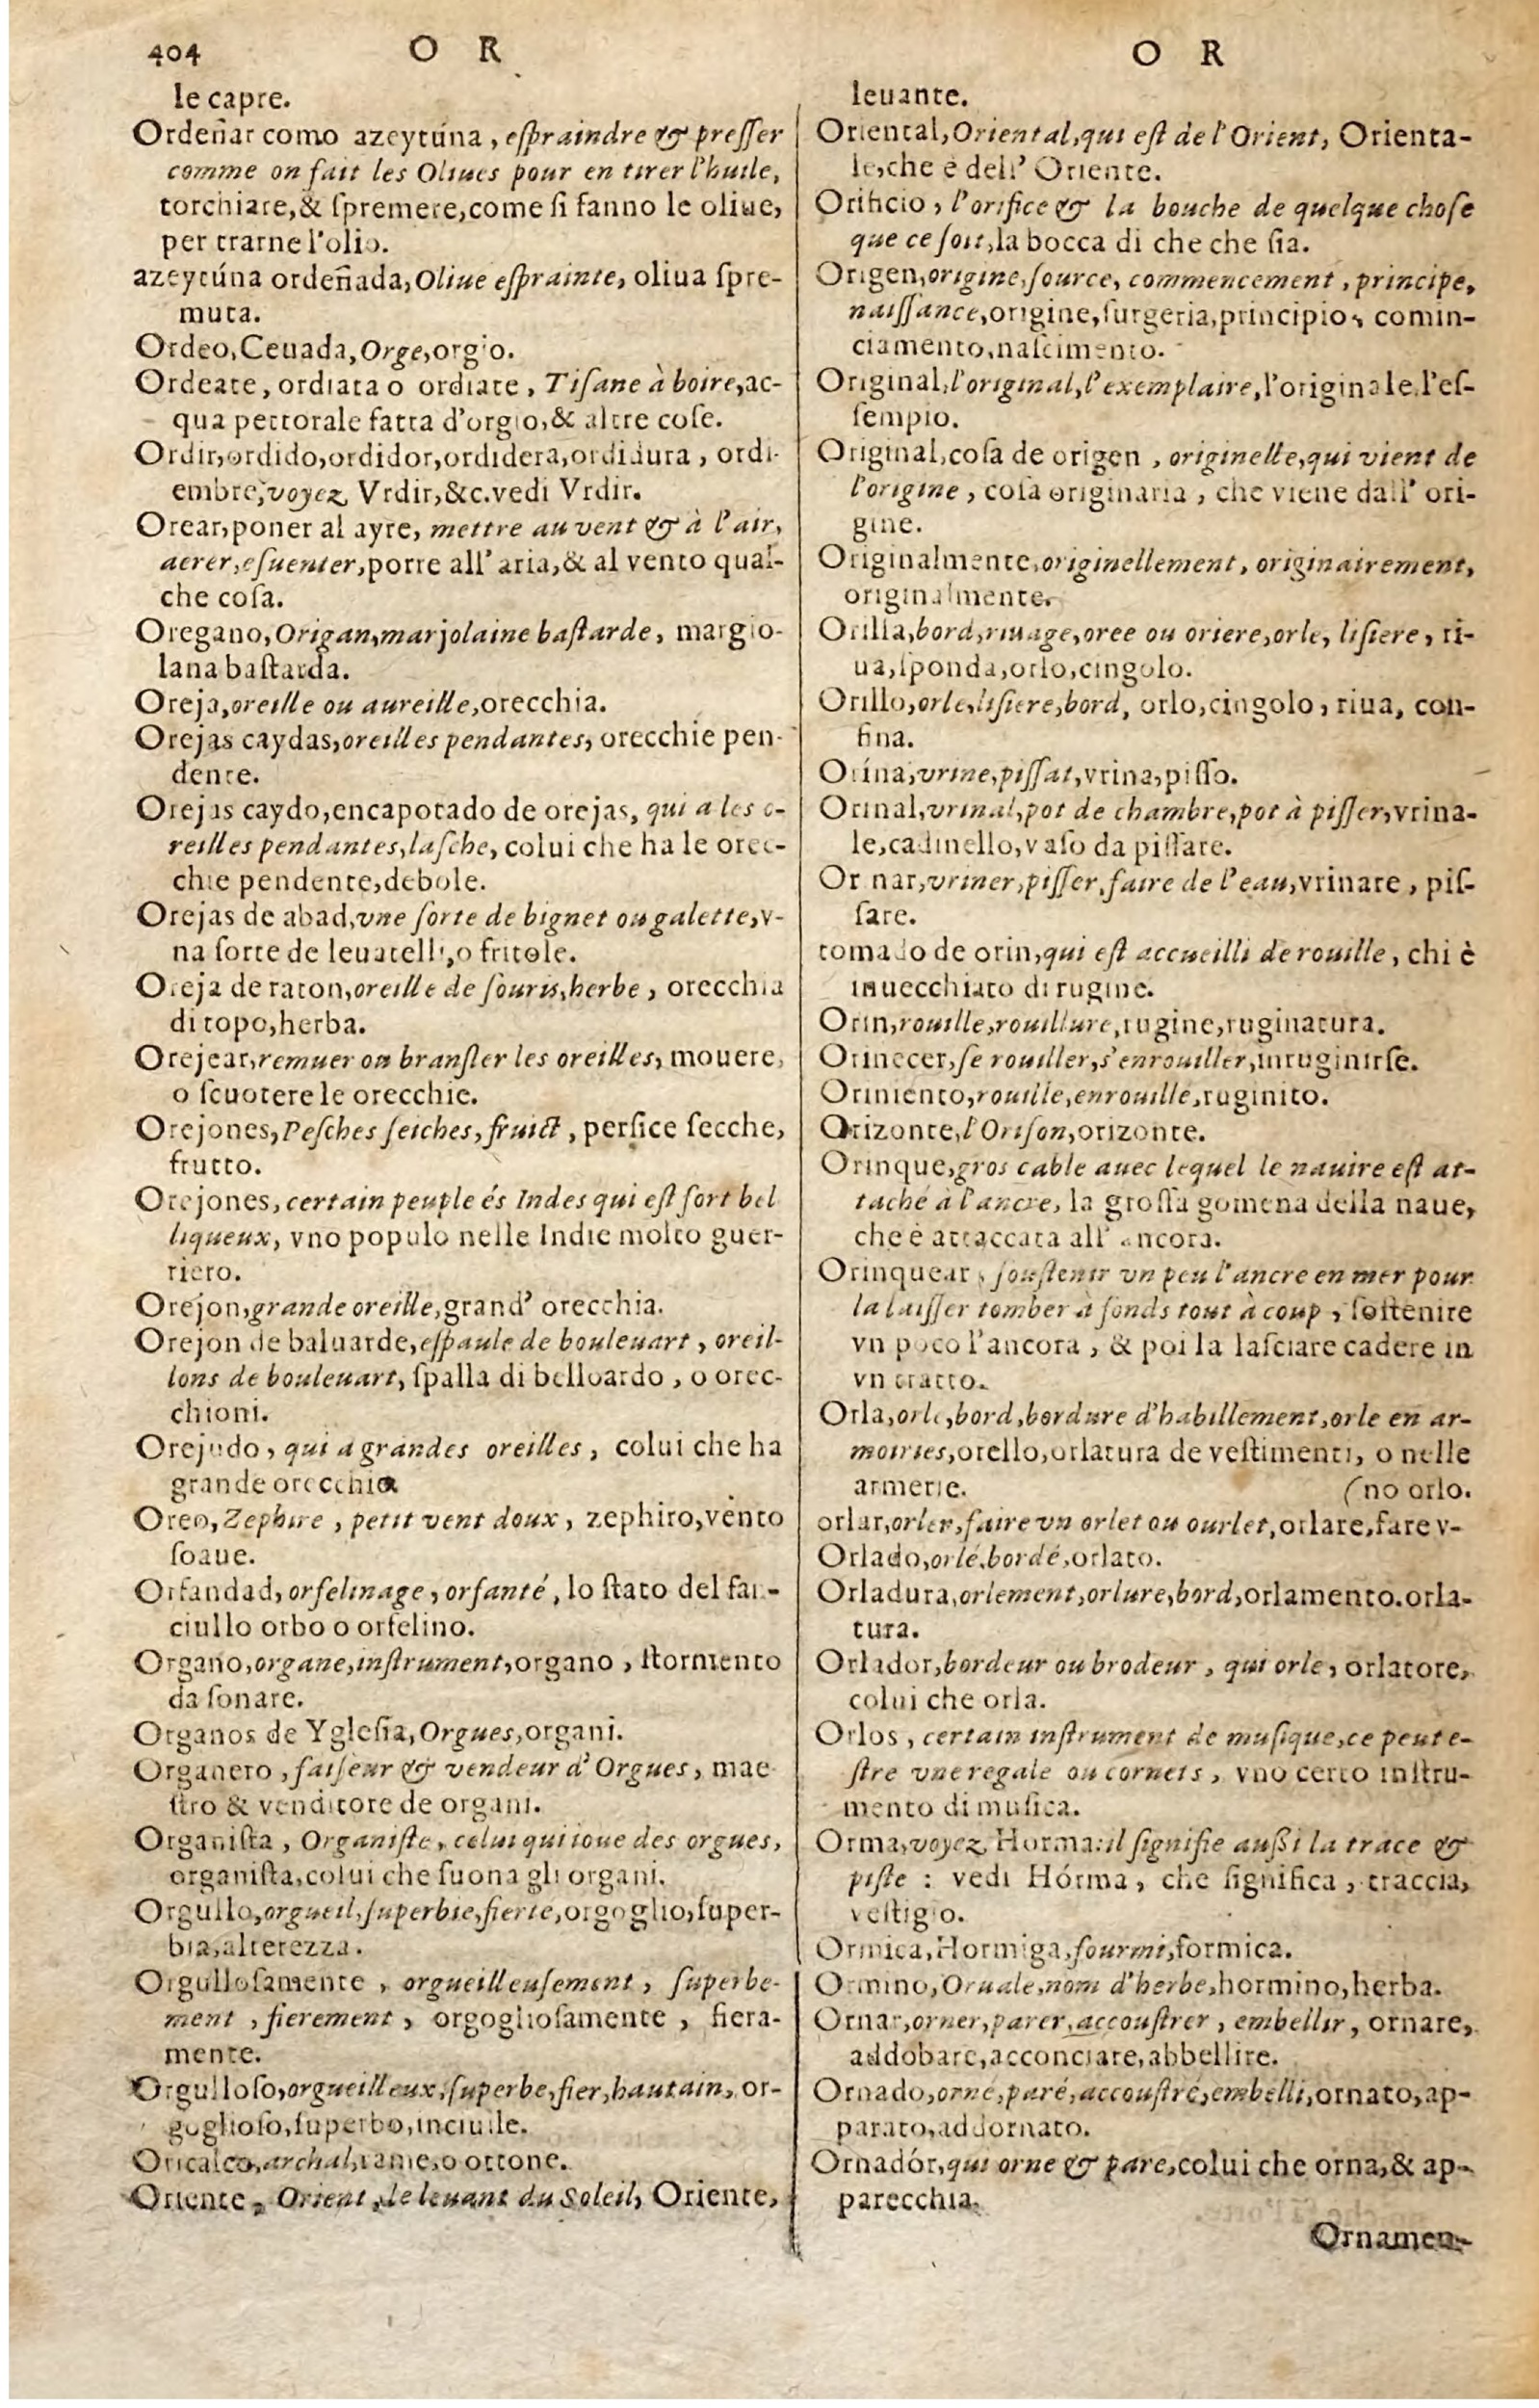 404 O R
le capre.
Ordeñar como azeytúna, eſpraindre & preſſer
comme on fait les Oliues pour en tirer l'huile,
torchiare,& ſpremere,come ſi fanno le oliue,
per trarne l'olio.
azeytúna ordeñada,Oliue eſprainte, oliua ſpre-
muta.
Ordeo,Ceuada,Orge,orgio.
Ordeate, ordiata o ordiate, Tiſane à boire,ac-
qua pettorale fatta d'orgio,& altre coſe.
Ordir,ordido,ordidor,ordidera,ordidura, ordi-
embre,voyez Vrdir,&c.vedi Vrdir.
Orear,poner al ayre, mettre au vent & à l'air,
aerer,eſuenter,porre all'aria,& al vento qual-
che coſa.
Oregano,Origan,marjolaine baſtarde, margio-
lana baſtarda.
Oreja,oreille ou aureille,orecchia.
Orejas caydas,oreilles pendantes, orecchie pen-
dente.
Orejas caydo,encapotado de orejas, qui a les o-
reilles pendantes,laſche, colui che ha le orec-
chie pendente,debole.
Orejas de abad,vne ſorte de bignet ou galette,v-
na ſorte de leuatelli,o fritole.
Oreja de raton,oreille de ſouris,herbe, orecchia
di topo,herba.
Orejear,remuer ou branſler les oreilles, mouere,
o ſcuotere le orecchie.
Orejones,Peſches ſeiches, fruict, perſice ſecche,
frutto.
Orejones, certain peuple és Indes qui eſt fort bel
liqueux, vno populo nelle Indie molto guer-
riero.
Orejon,grande oreille,grand' orecchia.
Orejon de baluarde,eſpaule de bouleuart, oreil-
lons de bouleuart, ſpalla di belloardo, o orec-
chioni.
Orejudo, qui a grandes oreilles, colui che ha
grande orecchia
Oreo,Zephire, petit vent doux, zephiro,vento
ſoaue.
Orfandad, orfelinage, orfanté, lo ſtato del fan-
ciullo orbo o orfelino.
Organo,organe,inſtrument,organo, ſtormento
da ſonare.
Organos de Ygleſia,Orgues,organi.
Organero, faiſeur & vendeur d'Orgues, mae
ſtro & venditore de organi.
Organiſta, Organiſte, celui qui ioue des orgues,
organiſta,colui che ſuona gli organi.
Orgullo,orgueil,ſuperbie,fierté,orgoglio,ſuper-
bia,alterezza.
Orgulloſamente, orgueilleuſement, ſuperbe-
ment, fierement, orgoglioſamente, fiera-
mente.
Orgulloſo,orgueilleux,ſuperbe,fier,hautain, or-
goglioſo,ſuperbo,inciuile.
Oricalco,archal,rame,o ottone.
Oriente, Orient, le leuant du Soleil, Oriente,
O R
leuante.
Oriental,Oriental,qui eſt de l'Orient, Orienta-
le,che è dell'Oriente.
Orificio, l'orifice & la bouche de quelque choſe
que ce ſoit,la bocca di che che ſia.
Origen,origine,ſource, commencement, principe,
naiſſance,origine,ſurgeria,principio, comin-
ciamento,naſcimento.
Original,l'original,l'exemplaire,l'originale,l'eſ-
ſempio.
Original,coſa de origen, originelle,qui vient de
l'origine, coſa originaria, che viene dall'ori-
gine.
Originalmente,originellement, originairement,
originalmente.
Orilla,bord,riuage,oree ou oriere,orle, liſiere, ri-
ua,ſponda,orlo,cingolo.
Orillo,orle,liſiere,bord, orlo,cingolo, riua, con-
fina.
Orína,vrine,piſſat,vrina,piſſo.
Orinal,vrinal,pot de chambre,pot à piſſer,vrina-
le,cadinello,vaſo da piſſare.
Orinar,vriner,piſſer,faire de l'eau,vrinare, piſ-
ſare.
tomado de orin,qui eſt accueilli de rouille, chi è
inuecchiato di rugine.
Orin,rouille,rouillure,rugine,ruginatura.
Orinecer,ſe rouiller,s'enrouiller,inruginirſe.
Oriniento,rouillé,enrouillé,ruginito.
Orizonte,l'Oriſon,orizonte.
Orinque,gros cable auec lequel le nauire eſt at-
taché à l'ancre, la groſſa gomena della naue,
che è attaccata all'ancora.
Orinquear, ſouſtenir vn peu l'ancre en mer pour
la laiſſer tomber à fonds tout à coup, ſoſtenire
vn poco l'ancora, & poi la laſciare cadere in
vn tratto.
Orla,orle,bord,bordure d'habillement,orle en ar-
moiries,orello,orlatura de veſtimenti, o nelle
armerie. (no orlo.
orlar,orler,faire vn orlet ou ourlet,orlare,fare v-
Orlado,orlé,bordé,orlato.
Orladura,orlement,orlure,bord,orlamento.orla-
tura.
Orlador,bordeur ou brodeur, qui orle, orlatore,
colui che orla.
Orlos, certain inſtrument de muſique,ce peut e-
ſtre vne regale ou cornets, vno certo inſtru-
mento di muſica.
Orma,voyez Horma:il ſignifie außi la trace &
piſte : vedi Hórma, che ſignifica, traccia,
veſtigio.
Ormica,Hormiga,fourmi,formica.
Ormino,Oruale,nom d'herbe,hormino,herba.
Ornar,orner,parer,accouſtrer, embellir, ornare,
addobare,acconciare,abbellire.
Ornado,orné,paré,accouſtré,embelli,ornato,ap-
parato,addornato.
Ornadór,qui orne & pare,colui che orna,& ap-
parecchia.
Ornamen-